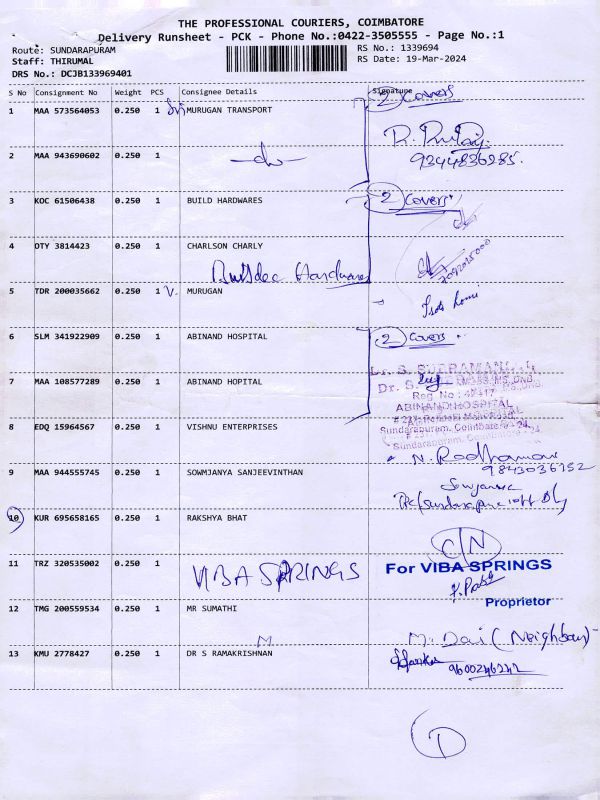 THE PROFESSIONAL COURIERS, COIMBATORE
Delivery Runsheet - PCK - Phone No.:0422-3505555 - Page No.:1
Route: SUNDARAPURAM
Staff: THIRUMAL
DRS No.: DCJB133969401
RS No.: 1339694
RS Date: 19-Mar-2024
S No Consignment No Weight PCS Consignee Details Signature
2 Covers
1 MAA 573564053 0.250 1 MURUGAN TRANSPORT
2 MAA 943690602 0.250 1
9344836285.
3 KOC 61506438 0.250 1 BUILD HARDWARES 2 Covers
4 DTY 3814423 0.250 1 CHARLSON CHARLY
Hardwares
5 TDR 200035662 0.250 1 MURUGAN
6 SLM 341922909 0.250 1 ABINAND HOSPITAL 2 Covers
7 MAA 108577289 0.250 1 ABINAND HOPITAL
ABINAND HOSPITAL
Sundarapuram, Coimbatore - 24.
8 EDQ 15964567 0.250 1 VISHNU ENTERPRISES
N. Radhamani
9843036352
9 MAA 944555745 0.250 1 SOWMJANYA SANJEEVINTHAN
Sowjanya
10 KUR 695658165 0.250 1 RAKSHYA BHAT
C/N
11 TRZ 320535002 0.250 1 VIBA SPRINGS
For VIBA SPRINGS
Proprietor
12 TMG 200559534 0.250 1 MR SUMATHI
M. Dai (Neighbour)
13 KMU 2778427 0.250 1 DR S RAMAKRISHNAN
9600246242
1